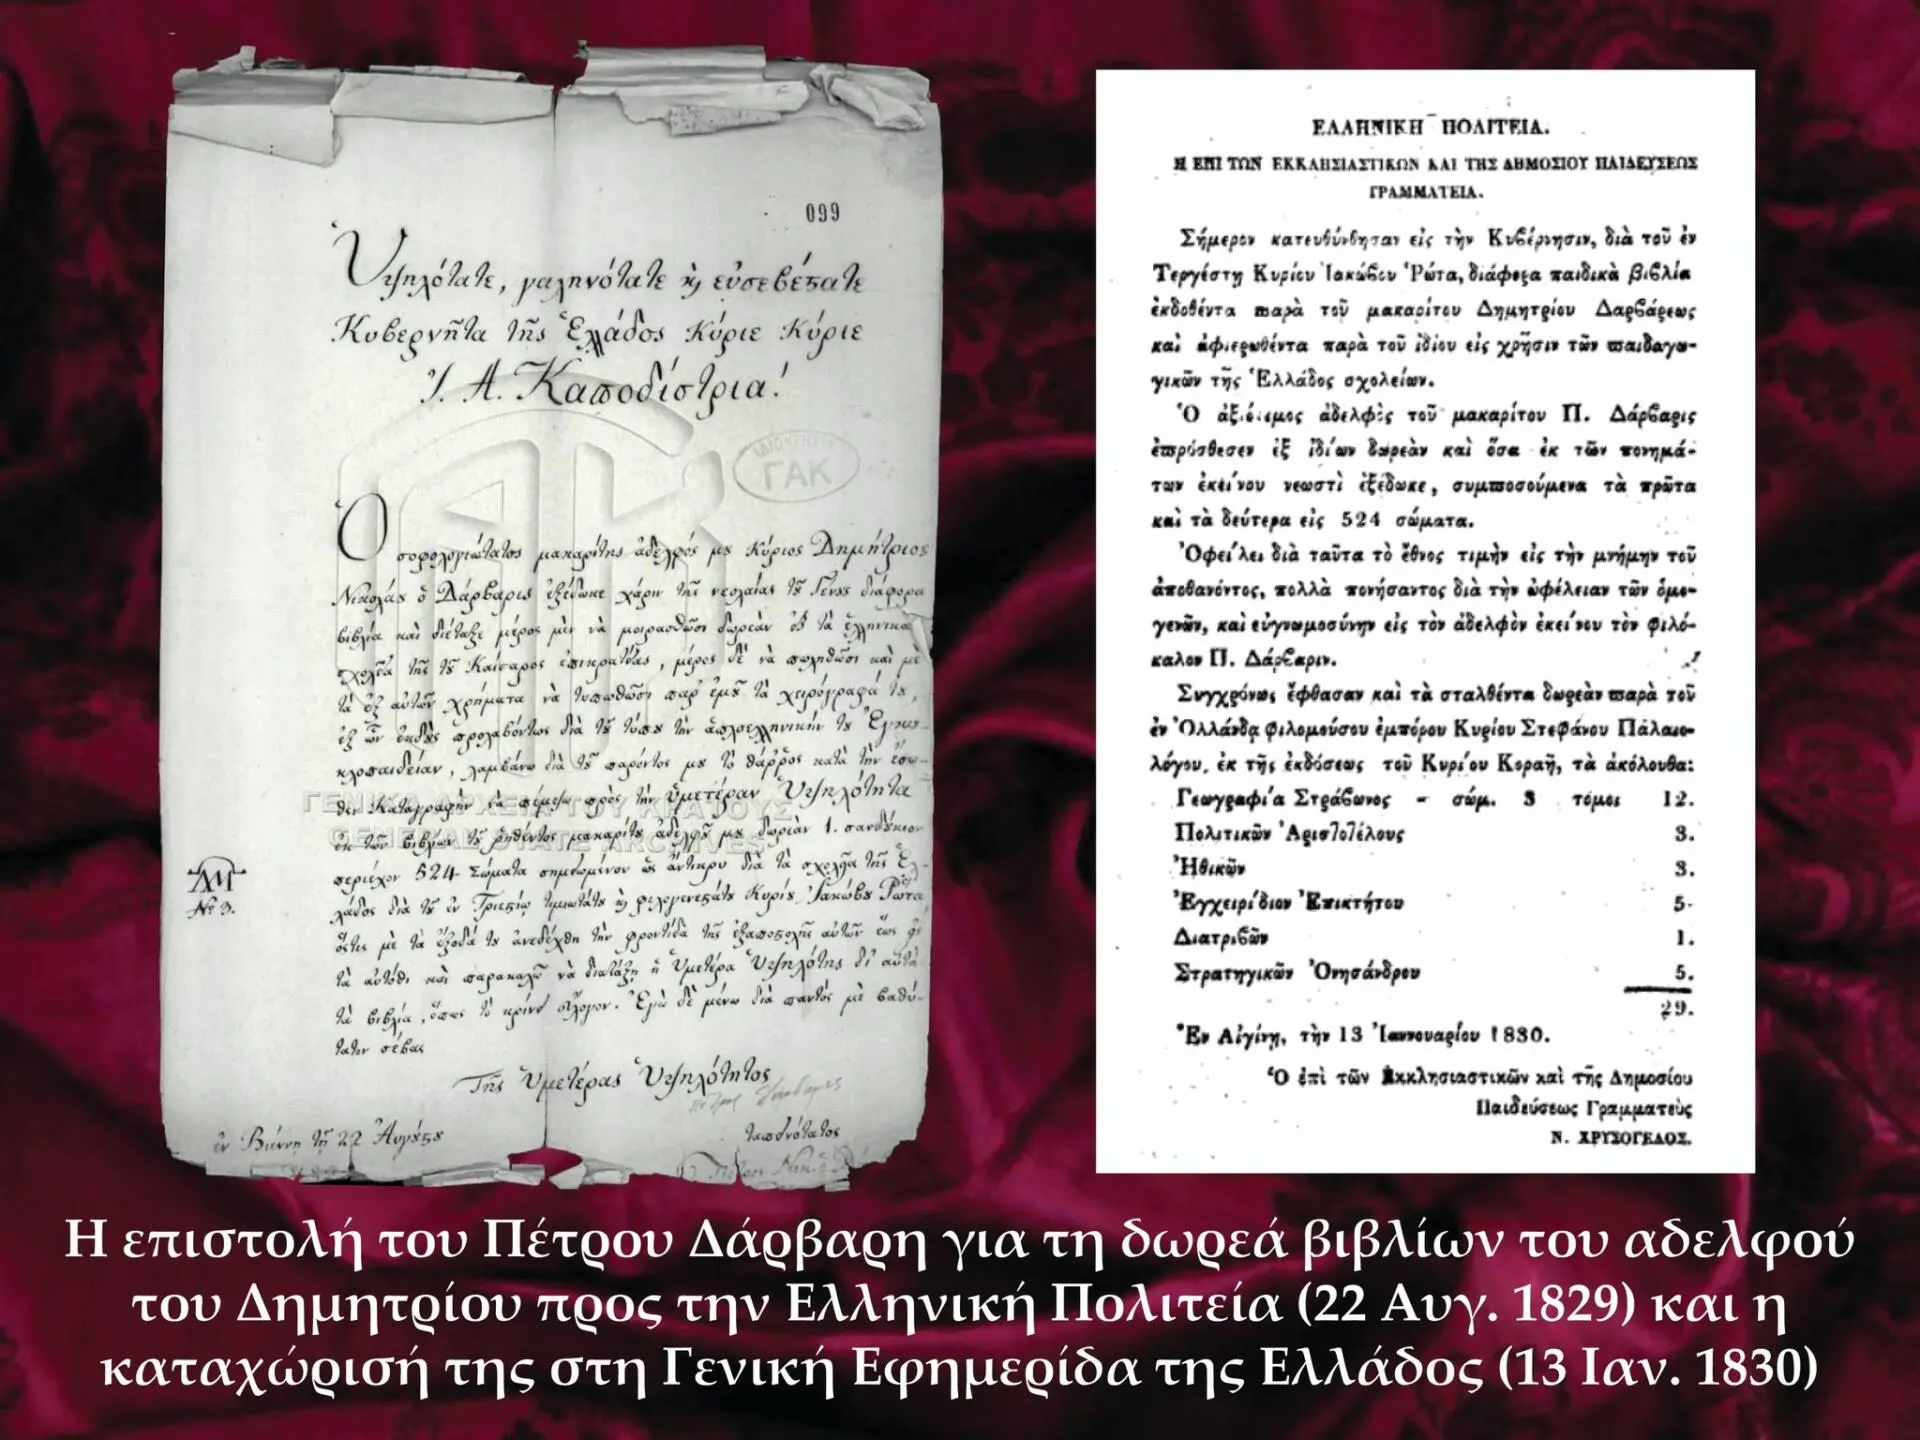 099
Ὑψηλότατε, γαληνότατε ϗ εὐσεβέϛατε
Κυβερνῆτα τῆς Ἑλλάδος Κύριε Κύριε
Ἰ. Α. Καποδίστρια!
ΙΔΙΟΚΤΗΣΙΑ
ΓΑΚ
Ὁ σοφολογιώτατος μακαρίτης ἀδελφός μȣ Κύριος Δημήτριος
Νικολάȣ ὁ Δάρβαρις ἐξέδωκε χάριν τῆς νεολαίας τȣ͂ Γένȣς διάφορα
βιβλία καὶ διέταξε μέρος μὲν νὰ μοιρασθῶσι δωρεὰν εἰς τὰ ἑλληνικὰ
σχολεῖα τῆς τȣ͂ Καίσαρος ἐπικρατείας, μέρος δὲ νὰ πωληθῶσι καὶ μὲ
τὰ ἐξ αὐτῶν χρήματα νὰ τυπωθῶσι παρ' ἐμȣ͂ τὰ χειρόγραφά τȣ,
ἐξ ὧν ἐκδȣ̀ς προλαβόντως διὰ τȣ͂ τύπȣ τὴν ἁπλοελληνικήν τȣ Ἐγκυ-
κλοπαιδείαν, λαμβάνω διὰ τȣ͂ παρόντος μȣ τὸ θάρρος κατὰ τὴν ἔσω-
θεν καταγραφὴν νὰ πέμψω πρὸς τὴν Ὑμετέραν Ὑψηλότητα
ἐκ τῶν βιβλίων τȣ͂ ῥηθέντος μακαρίτȣ ἀδελφȣ͂ μȣ δωρεὰν 1. σανδύκιον
ΓΕΝΙΚΑ ΑΡΧΕΙΑ ΤΟΥ ΚΡΑΤΟΥΣ
GENERAL STATE ARCHIVES
περιέχον 524 Σώματα σημειωμένον ὡς ἄντικρυ διὰ τὰ σχολεῖα τῆς Ἑλ-
λάδος διὰ τȣ͂ ἐν Τριεϛίῳ τιμιωτάτȣ ϗ φιλογενεϛάτȣ Κυρίȣ Ἰακώβȣ Ῥώτα,
Νο 3.
ὅϛις μὲ τὰ ἔξοδά τȣ ἀνεδέχθη τὴν φροντίδα τῆς ἐξαποϛολῆς αὐτῶν ἕως
τὰ αὐτόθι καὶ παρακαλῶ νὰ διατάξῃ ἡ Ὑμετέρα Ὑψηλότης δι' αὐτὰ
τὰ βιβλία, ὅπως τὸ κρίνει εὔλογον. Ἐγὼ δὲ μένω διὰ παντὸς μὲ βαθύ-
τατον σέβας
Τῆς Ὑμετέρας Ὑψηλότητος
ἐν Βιέννῃ τῇ 22 Αὐγȣ́ϛȣ
ταπεινότατος
Πέτρος
ΕΛΛΗΝΙΚΗ ΠΟΛΙΤΕΙΑ.
Η ΕΠΙ ΤΩΝ ΕΚΚΛΗΣΙΑΣΤΙΚΩΝ ΚΑΙ ΤΗΣ ΔΗΜΟΣΙΟΥ ΠΑΙΔΕΥΣΕΩΣ
ΓΡΑΜΜΑΤΕΙΑ.
Σήμερον κατευθύνθησαν εἰς τὴν Κυβέρνησιν, διὰ τοῦ ἐν
Τεργέστῃ Κυρίου Ἰακώβου Ῥώτα, διάφορα παιδικὰ βιβλία
ἐκδοθέντα παρὰ τοῦ μακαρίτου Δημητρίου Δαρβάρεως
καὶ ἀφιερωθέντα παρὰ τοῦ ἰδίου εἰς χρῆσιν τῶν παιδαγω-
γικῶν τῆς Ἑλλάδος σχολείων.
Ὁ ἀξιότιμος ἀδελφὸς τοῦ μακαρίτου Π. Δάρβαρις
ἐπρόσθεσεν ἐξ ἰδίων δωρεὰν καὶ ὅσα ἐκ τῶν πονημά-
των ἐκείνου νεωστὶ ἐξέδωκε, συμποσούμενα τὰ πρῶτα
καὶ τὰ δεύτερα εἰς 524 σώματα.
Ὀφείλει διὰ ταῦτα τὸ ἔθνος τιμὴν εἰς τὴν μνήμην τοῦ
ἀποθανόντος, πολλὰ πονήσαντος διὰ τὴν ὠφέλειαν τῶν ὁμο-
γενῶν, καὶ εὐγνωμοσύνην εἰς τὸν ἀδελφὸν ἐκείνου τὸν φιλό-
καλον Π. Δάρβαριν.
Συγχρόνως ἔφθασαν καὶ τὰ σταλθέντα δωρεὰν παρὰ τοῦ
ἐν Ὁλλάνδᾳ φιλομούσου ἐμπόρου Κυρίου Στεφάνου Παλαιο-
λόγου, ἐκ τῆς ἐκδόσεως τοῦ Κυρίου Κοραῆ, τὰ ἀκόλουθα:
Γεωγραφία Στράβωνος - σώμ. 3 τόμοι 12.
Πολιτικῶν Ἀριστοτέλους 3.
Ἠθικῶν 3.
Ἐγχειρίδιον Ἐπικτήτου 5.
Διατριβῶν 1.
Στρατηγικῶν Ὀνησάνδρου 5.
29.
Ἐν Αἰγίνῃ, τὴν 13 Ἰαννουαρίου 1830.
Ὁ ἐπὶ τῶν Ἐκκλησιαστικῶν καὶ τῆς Δημοσίου
Παιδεύσεως Γραμματεὺς
Ν. ΧΡΥΣΟΓΕΛΟΣ.
Η επιστολή του Πέτρου Δάρβαρη για τη δωρεά βιβλίων του αδελφού
του Δημητρίου προς την Ελληνική Πολιτεία (22 Αυγ. 1829) και η
καταχώρισή της στη Γενική Εφημερίδα της Ελλάδος (13 Ιαν. 1830)